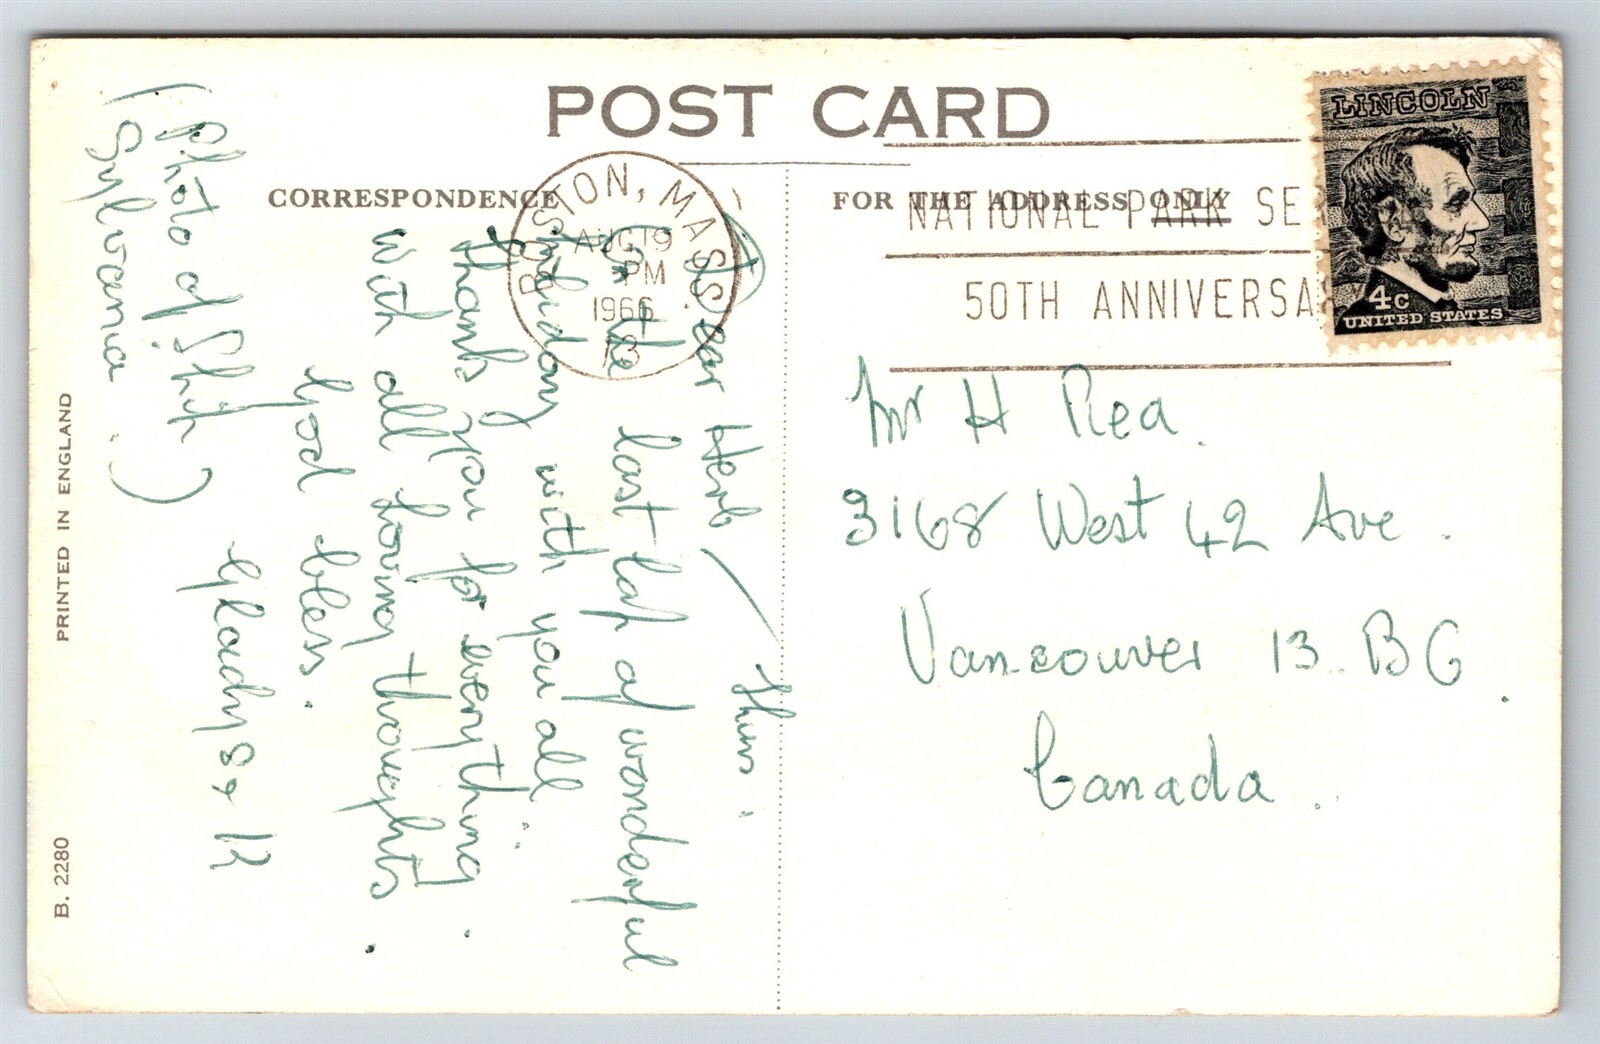 POST CARD
CORRESPONDENCE
FOR THE ADDRESS ONLY
BOSTON, MASS
AUG 19
PM
1966
13
NATIONAL PARK SE
50TH ANNIVERSA
LINCOLN
4c
UNITED STATES
Thurs.
Dear Herb
On the last lap of wonderful
holiday with you all.
Thank you for everything.
With all loving thoughts.
God bless.
Gladys & K
(Photo of Ship)
Sylvania.)
Mr H Rea.
3168 West 42 Ave.
Vancouver 13. BC.
Canada.
PRINTED IN ENGLAND
B. 2280